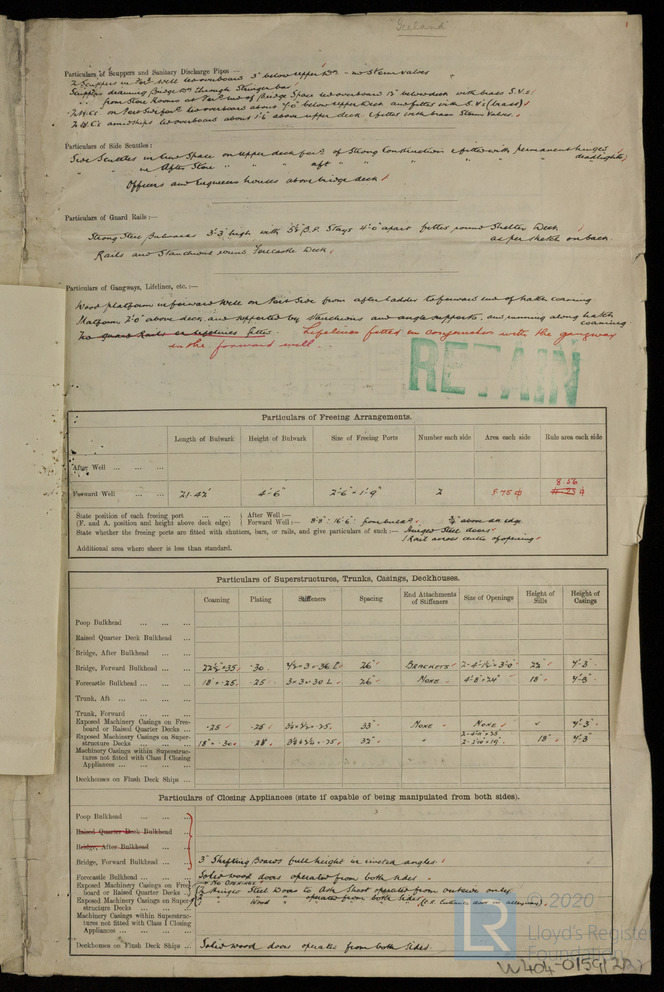 "Iceland"
1
Particulars of Scuppers and Sanitary Discharge Pipes —
2 Scuppers in For'd Well led overboard 3' below upper Dk — no Storm valves
Scuppers draining Bridge Dk through Stringer bar
from Store Rooms at end of Bridge Space led overboard 15" below deck with brass S.V.s
2 W.Cs on Port Side led overboard about below upper Deck and fitted with S.V.s (brass)
2 W.Cs amidships led overboard about 1'6" above upper deck & fitted with brass Storm Valves.
Particulars of Side Scuttles:—
Side Scuttles in Space on upper deck for'd of Strong Construction & fitted with permanent hinged deadlights
in After Store " aft " " " " " "
Officers and Engineers houses above bridge deck
Particulars of Guard Rails:—
Strong Steel Bulwarks 3'-3" high with 5½" B.P. Stays 4'-0" apart fitted round Shelter Deck
as per sketch on back.
Rails and Stanchions round Forecastle Deck.
Particulars of Gangways, Lifelines, etc.:—
Wood platform in forward well on Port Side from after ladder to forward end of hatch coaming
Platform 2'-0" above deck and supported by Stanchions and angle supports, and running along hatch coaming
No guard Rails or lifelines fitted. Lifelines fitted in conjunction with the gangway
in the forward well.
RETAIN
Particulars of Freeing Arrangements.
Length of Bulwark Height of Bulwark Size of Freeing Ports Number each side Area each side Rule area each side
After Well ... ... ...
8.56
Forward Well ... ... 21.42' 4'-6" 2'-6" × 1'-9" 2 8.75
State position of each freeing port ... ... After Well:—
(F. and A. position and height above deck edge) Forward Well:— 8'-8" : 16'-6" from bulkhd. above dk edge
State whether the freeing ports are fitted with shutters, bars, or rails, and give particulars of such:— Hinged Steel doors.
1 Rail across centre of opening.
Additional area where sheer is less than standard.
Particulars of Superstructures, Trunks, Casings, Deckhouses.
Coaming Plating Stiffeners Spacing End Attachments of Stiffeners Size of Openings Height of Sills Height of Casings
Poop Bulkhead ... ... ...
Raised Quarter Deck Bulkhead ...
Bridge, After Bulkhead ... ...
Bridge, Forward Bulkhead ... ... 22½" × .35 .30 4½ × 3 × .36 L 26" Brackets 2 - 4'-1½" × 3'-0" 7'-3"
Forecastle Bulkhead ... ... 18" × .25 .25 3 × 3 × .30 L 26" None 4'-8" × 24" 18" 7'-3"
Trunk, Aft ... ... ...
Trunk, Forward ... ... ...
Exposed Machinery Casings on Freeboard or Raised Quarter Decks ... .25 .26 33" None None 7'-3"
Exposed Machinery Casings on Superstructure Decks ... ... 18" × .30 .28 32" " 18" 7'-3"
Machinery Casings within Superstructures not fitted with Class I Closing Appliances ... ... ...
Deckhouses on Flush Deck Ships ...
Particulars of Closing Appliances (state if capable of being manipulated from both sides).
Poop Bulkhead ... ... ...
Raised Quarter Deck Bulkhead ...
Bridge, After Bulkhead ... ...
Bridge, Forward Bulkhead ... ... 3" Shifting Boards full height in riveted angles.
Forecastle Bulkhead ... ... Solid wood doors operated from both sides.
Exposed Machinery Casings on Freeboard or Raised Quarter Decks ... No Openings
Exposed Machinery Casings on Superstructure Decks ... ... 2 Hinged Steel Doors to Ash Shoot operated from outside only
2 " Wood " operated from both sides
Machinery Casings within Superstructures not fitted with Class I Closing Appliances ... ... ...
Deckhouses on Flush Deck Ships ... Solid wood doors operated from both sides.
© 2020
LR
Lloyd's Register
Foundation
W404-0159(2R)